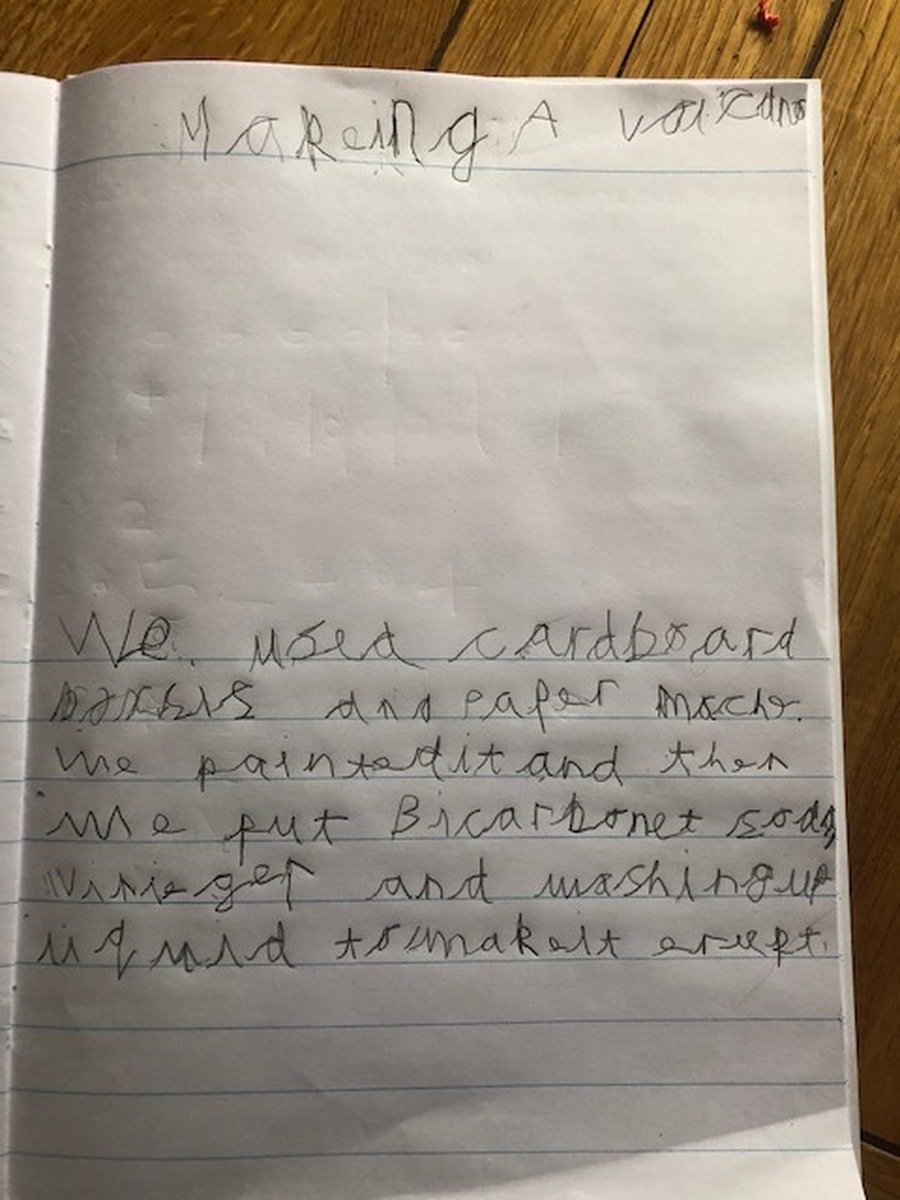 Makeing A volcano
We used cardboard
boxsis and paper mache.
we painted it and then
we put Bicarbonet soda
vinieger and washing up
liquid to make it erupt.